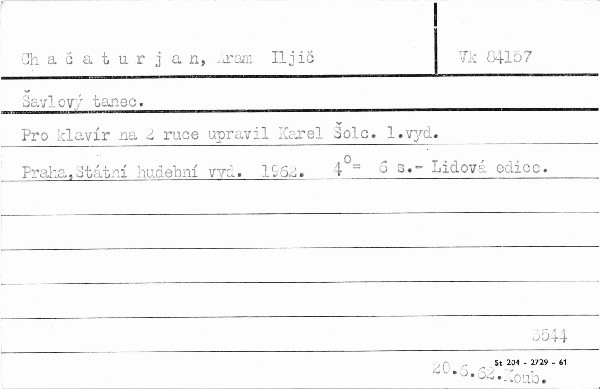 Chačaturjan, Aram Iljič Vk 84157
Šavlový tanec.
Pro klavír na 2 ruce upravil Karel Šolc. 1.vyd.
Praha,Státní hudební vyd. 1962. 4°= 6 s.- Lidová edice.
3544
St 204 - 2729 - 61
20.6.62.Koub.